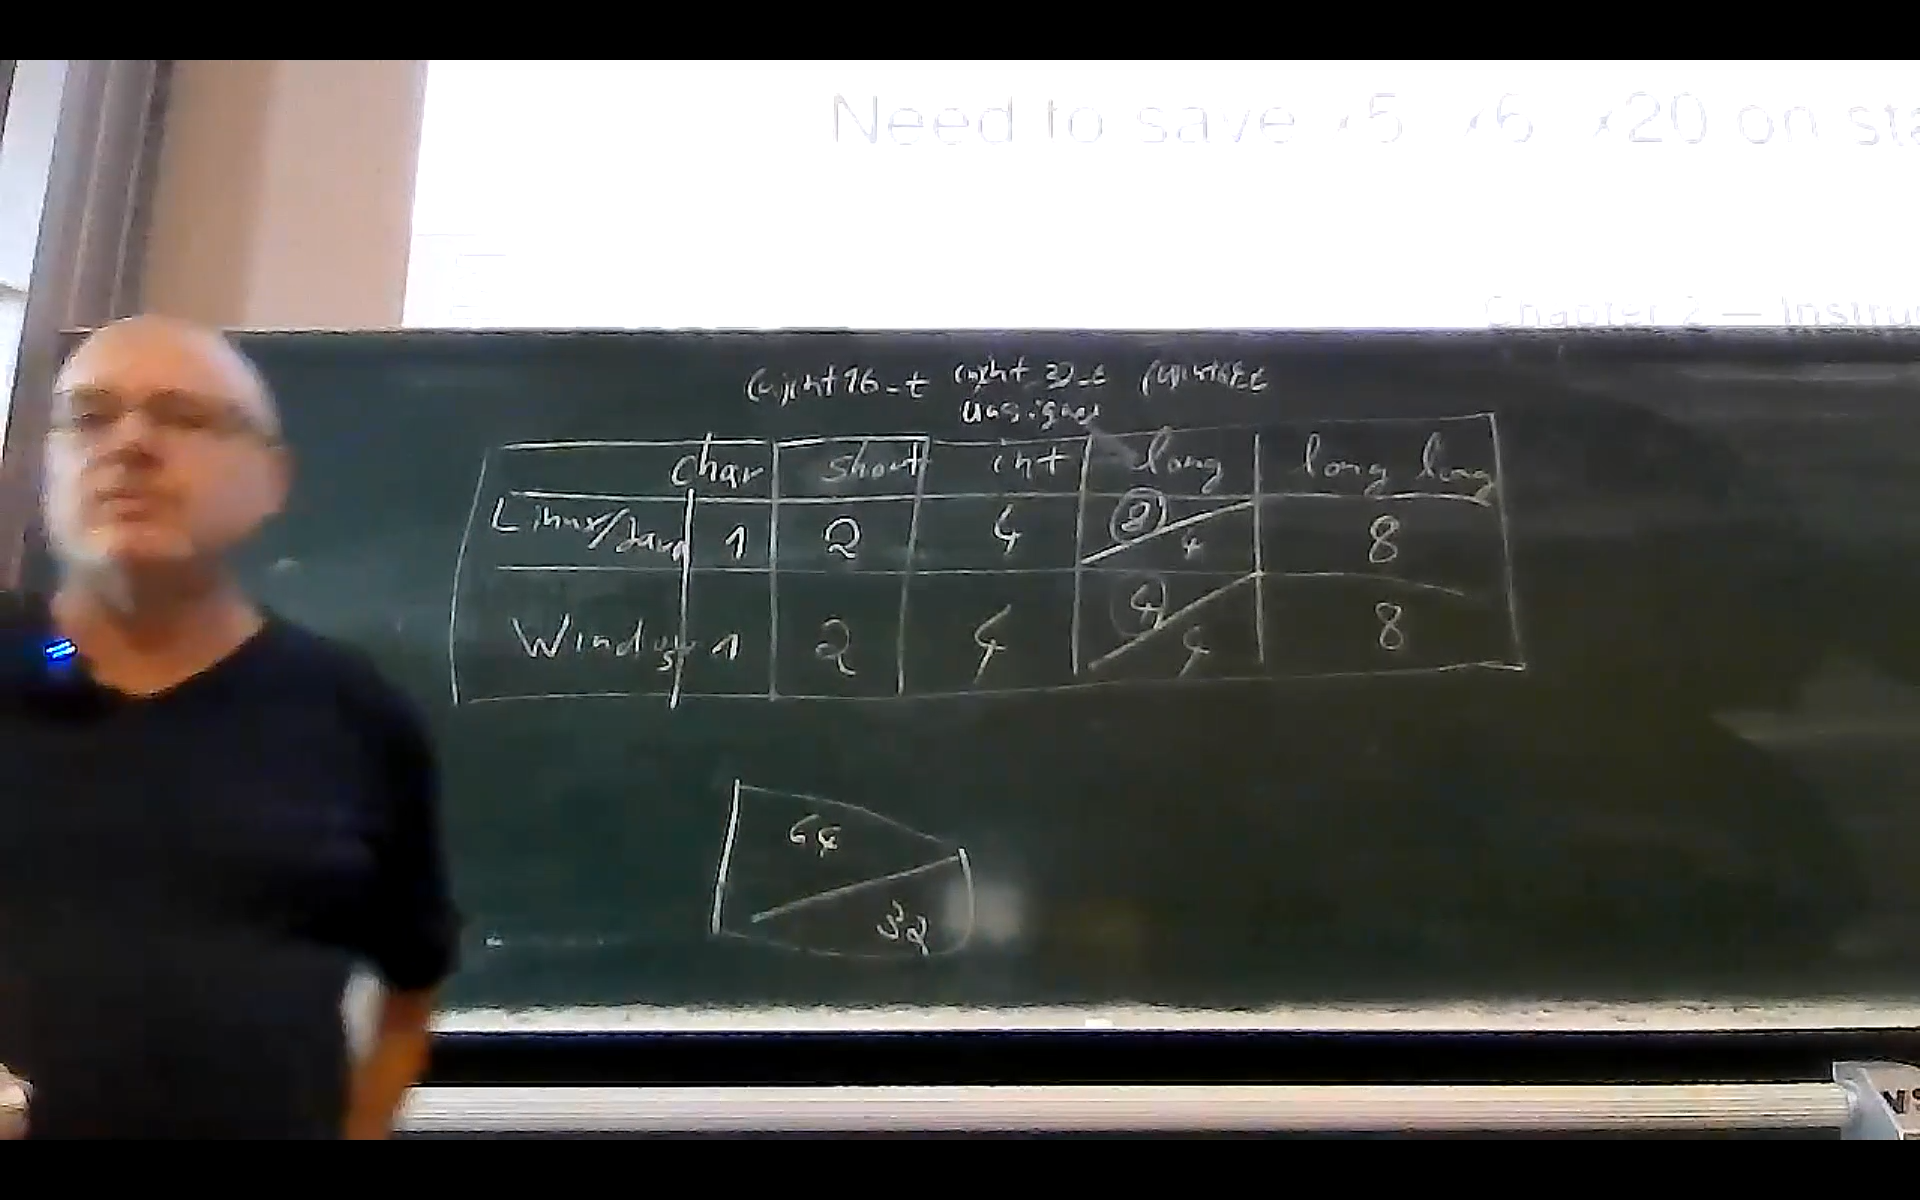 Need to save x5, x6, x20 on sta
Chapter 2 — Instruc
(u)int16_t (u)int32_t
unsigned
char short int long long long
Linux/Java 1 2 4 8 4 8
Windows 1 2 4 4 4 8
64
32